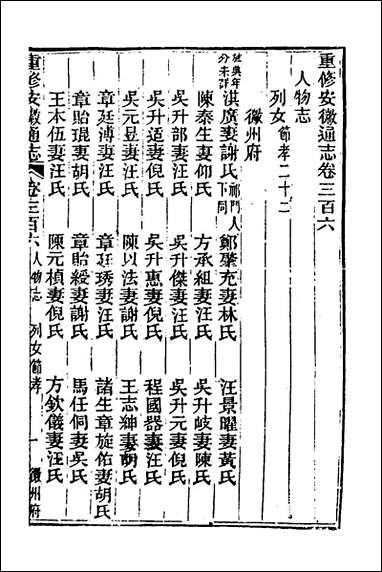 重修安徽通志卷三百六
人物志
列女節孝二十二
徽州府
淇廣妻謝氏祁門人下同 鄭聚充妻林氏 汪景曜妻黃氏
陳泰生妻仰氏 方承組妻汪氏 吳升岐妻陳氏
吳升部妻汪氏 吳升傑妻汪氏 吳升元妻倪氏
吳升适妻倪氏 吳升惠妻倪氏 程國器妻汪氏
吳元昱妻汪氏 陳以法妻謝氏 王志紳妻胡氏
章廷溥妻汪氏 章廷琇妻汪氏 諸生章旋佑妻胡氏
章貽琨妻胡氏 章貽綬妻謝氏 馬任伺妻吳氏
王本伍妻汪氏 陳元楨妻倪氏 方欽儀妻汪氏
重修安徽通志 卷三百六 人物志 列女節孝 一 徽州府